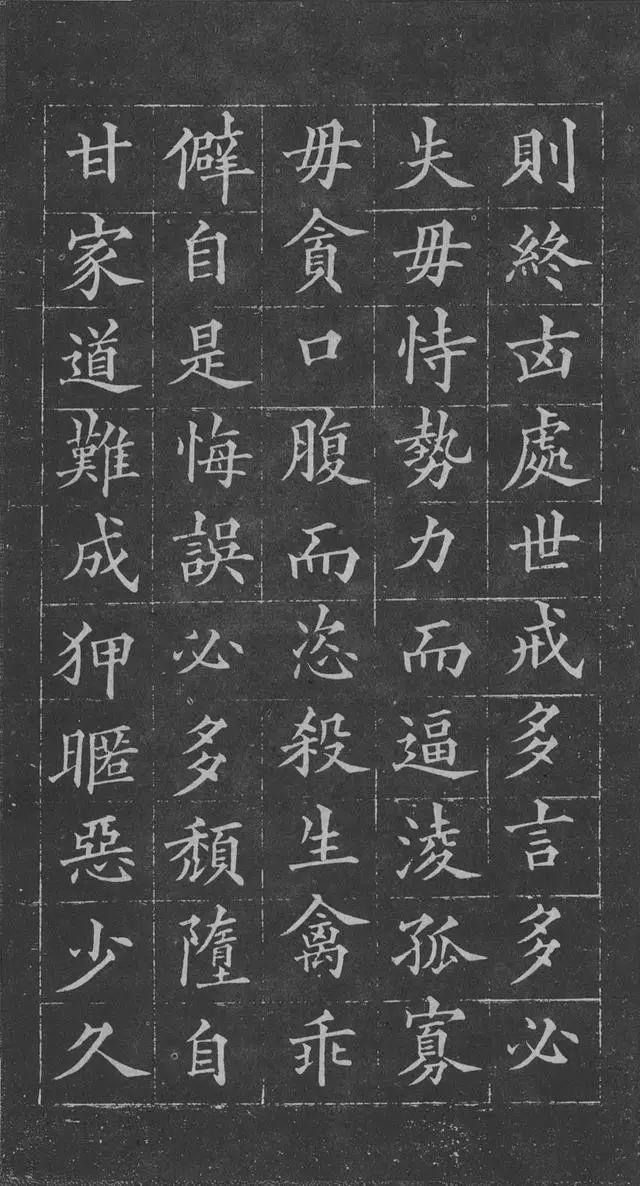 則終凶處世戒多言多必
失毋恃勢力而逼淩孤寡
毋貪口腹而恣殺生禽乖
僻自是悔誤必多頹隳自
甘家道難成狎暱惡少久